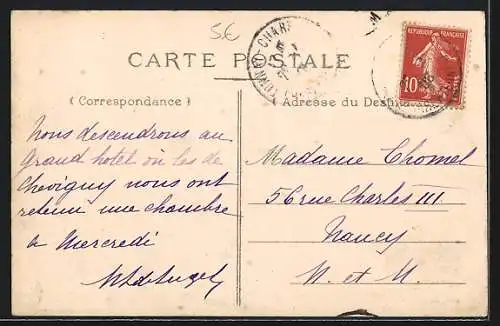 5€
CARTE POSTALE
RÉPUBLIQUE FRANÇAISE
10
(Correspondance)
Adresse du Destinataire
Nous descendrons au
Grand hotel où les de
Chevigny nous ont
retenu une chambre
a Mercredi
Madame Chomel
56 rue Charles III
Nancy
M. et M.